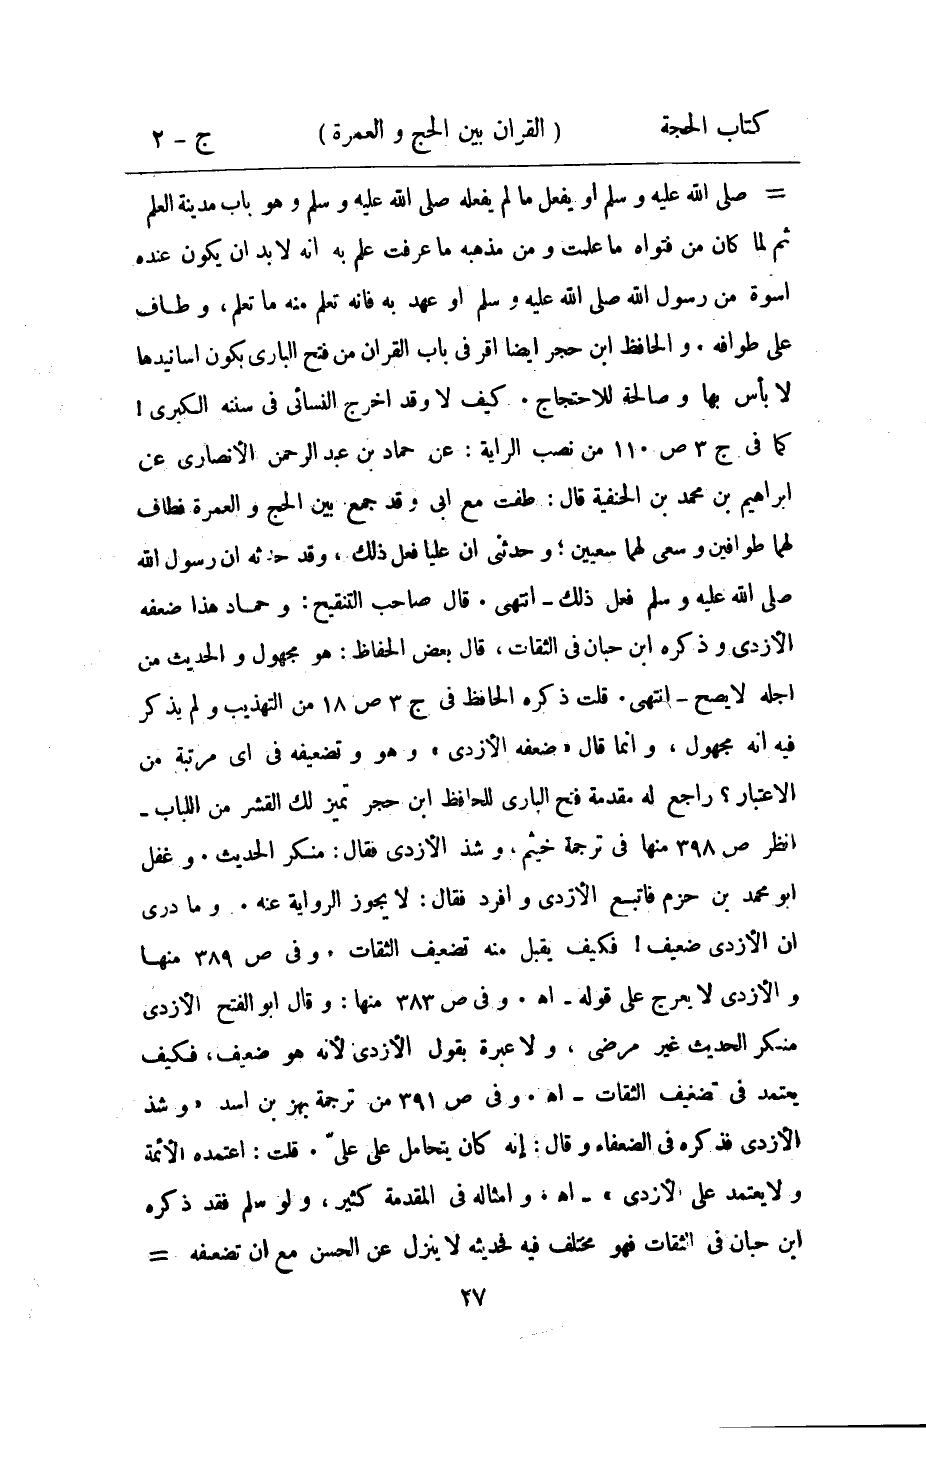 كتاب الحجة ( القران بين الحج و العمرة ) ج - ٢
= صلى الله عليه و سلم او يفعل ما لم يفعله صلى الله عليه و سلم و هو باب مدينة العلم
ثم لما كان من فتواه ما علمت و من مذهبه ما عرفت علم به انه لا بد ان يكون عنده
اسوة من رسول الله صلى الله عليه و سلم او عهد به فانه تعلم منه ما تعلم ، و طاف
على طوافه ٠ و الحافظ ابن حجر ايضا اقر فى باب القران من فتح البارى بكون اسانيدها
لا بأس بها و صالحة للاحتجاج ٠ كيف لا وقد اخرج النسائى فى سننه الكبرى !
كما فى ج ٣ ص ١١٠ من نصب الراية : عن حماد بن عبد الرحمن الأنصارى عن
ابراهيم بن محمد بن الحنفية قال : طفت مع ابى وقد جمع بين الحج و العمرة فطاف
لهما طوافين و سعى لهما سعيين ؛ و حدثنى ان عليا فعل ذلك ، وقد حدثه ان رسول الله
صلى الله عليه و سلم فعل ذلك - انتهى ٠ قال صاحب التنقيح : و حماد هذا ضعفه
الأزدى و ذكره ابن حبان فى الثقات ، قال بعض الحفاظ : هو مجهول و الحديث من
اجله لا يصح - انتهى ٠ قلت ذكره الحافظ فى ج ٣ ص ١٨ من التهذيب و لم يذكر
فيه انه مجهول ، و انما قال « ضعفه الأزدى » و هو و تضعيفه فى اى مرتبة من
الاعتبار ؟ راجع له مقدمة فتح البارى للحافظ ابن حجر تميز لك القشر من اللباب -
انظر ص ٣٩٨ منها فى ترجمة خيثم ، و شذ الأزدى فقال : منكر الحديث ٠ و غفل
ابو محمد بن حزم فاتبع الأزدى و افرد فقال : لا يجوز الرواية عنه ٠ و ما درى
ان الأزدى ضعيف ! فكيف يقبل منه تضعيف الثقات ٠ و فى ص ٣٨٩ منها
و الأزدى لا يعرج على قوله - اه ٠ و فى ص ٣٨٣ منها : و قال ابو الفتح الأزدى
منكر الحديث غير مرضى ، و لا عبرة بقول الأزدى لأنه هو ضعيف ، فكيف
يعتمد فى تضعيف الثقات - اه ٠ و فى ص ٣٩١ من ترجمة بهز بن اسد « و شذ
الأزدى فذكره فى الضعفاء و قال : إنه كان يتحامل على علىّ ٠ قلت : اعتمده الأئمة
و لا يعتمد على الأزدى » - اه ٠ و امثاله فى المقدمة كثير ، و لو سلم فقد ذكره
ابن حبان فى الثقات فهو مختلف فيه فحديثه لا ينزل عن الحسن مع ان تضعفه =
٢٧